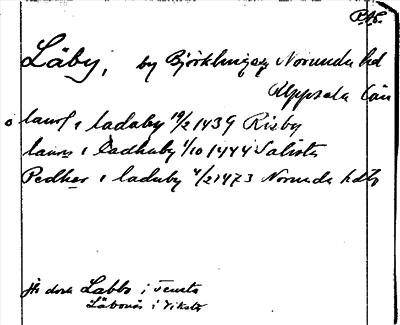 RAC.
Läby, by Björklinge sn Norunda hd
Uppsala län
o laur[e] i ladaby 19/2 1439 Risby
laurs i Ladhaby 1/10 1444 Salista
Pedher i laduby 4/2 1473 Norunda hdtb
Jfr dock Labbo i Tensta
Läbonäs i Viksta